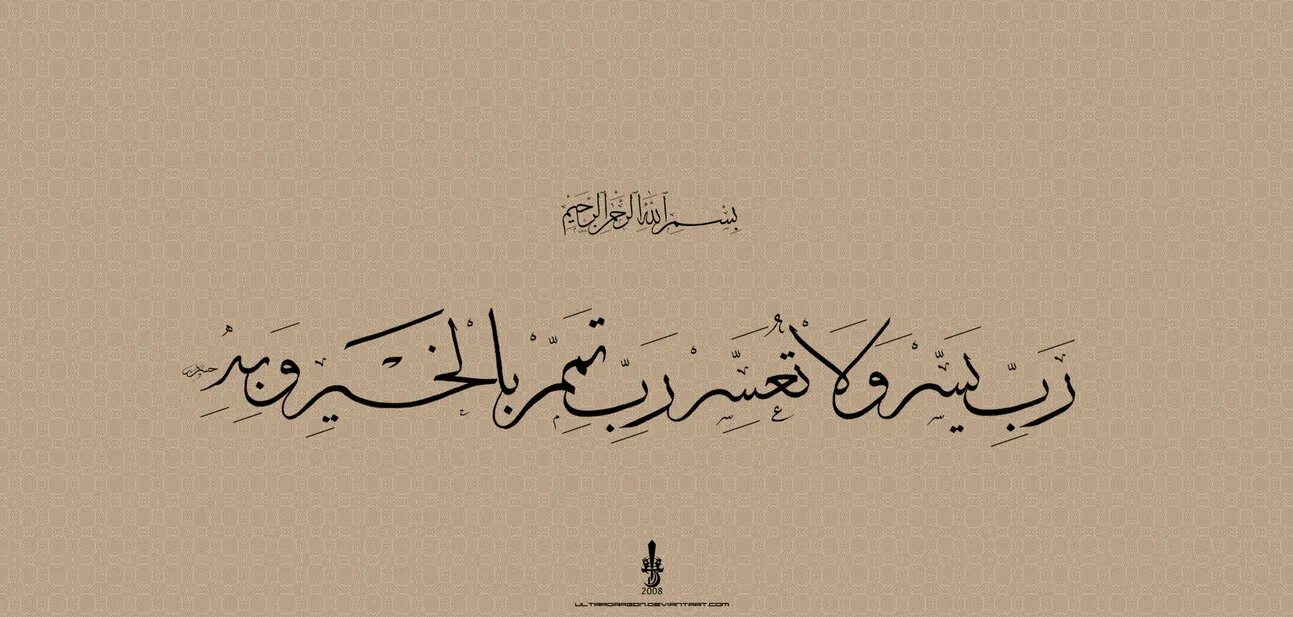 بِسْمِ اللَّهِ الرَّحْمَنِ الرَّحِيمِ
رَبِّ يَسِّرْ وَلَا تُعَسِّرْ رَبِّ تَمِّمْ بِالْخَيْرِ وَبِهِ
2008
ULTRADRAGON.DEVIANTART.COM